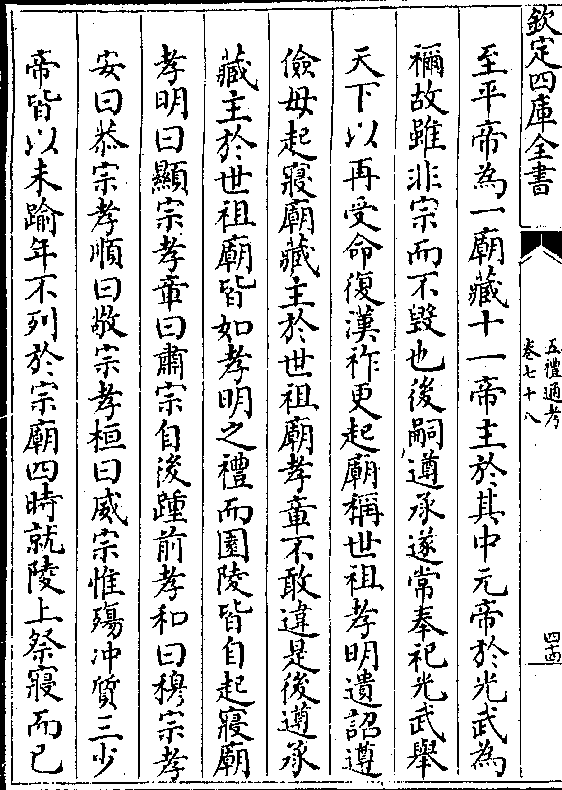 欽定四庫全書
五禮通考
卷七十八
四十四
至平帝為一廟藏十一帝主於其中元帝於光武為
禰故雖非宗而不毀也後嗣遵承遂常奉祀光武舉
天下以再受命復漢祚更起廟稱世祖孝明遺詔遵
儉毋起寢廟藏主於世祖廟孝章不敢違是後遵承
藏主於世祖廟皆如孝明之禮而園陵皆自起寢廟
孝明曰顯宗孝章曰肅宗自後踵前孝和曰穆宗孝
安曰恭宗孝順曰敬宗孝桓曰威宗惟殤冲質三少
帝皆以未踰年不列於宗廟四時就陵上祭寢而已